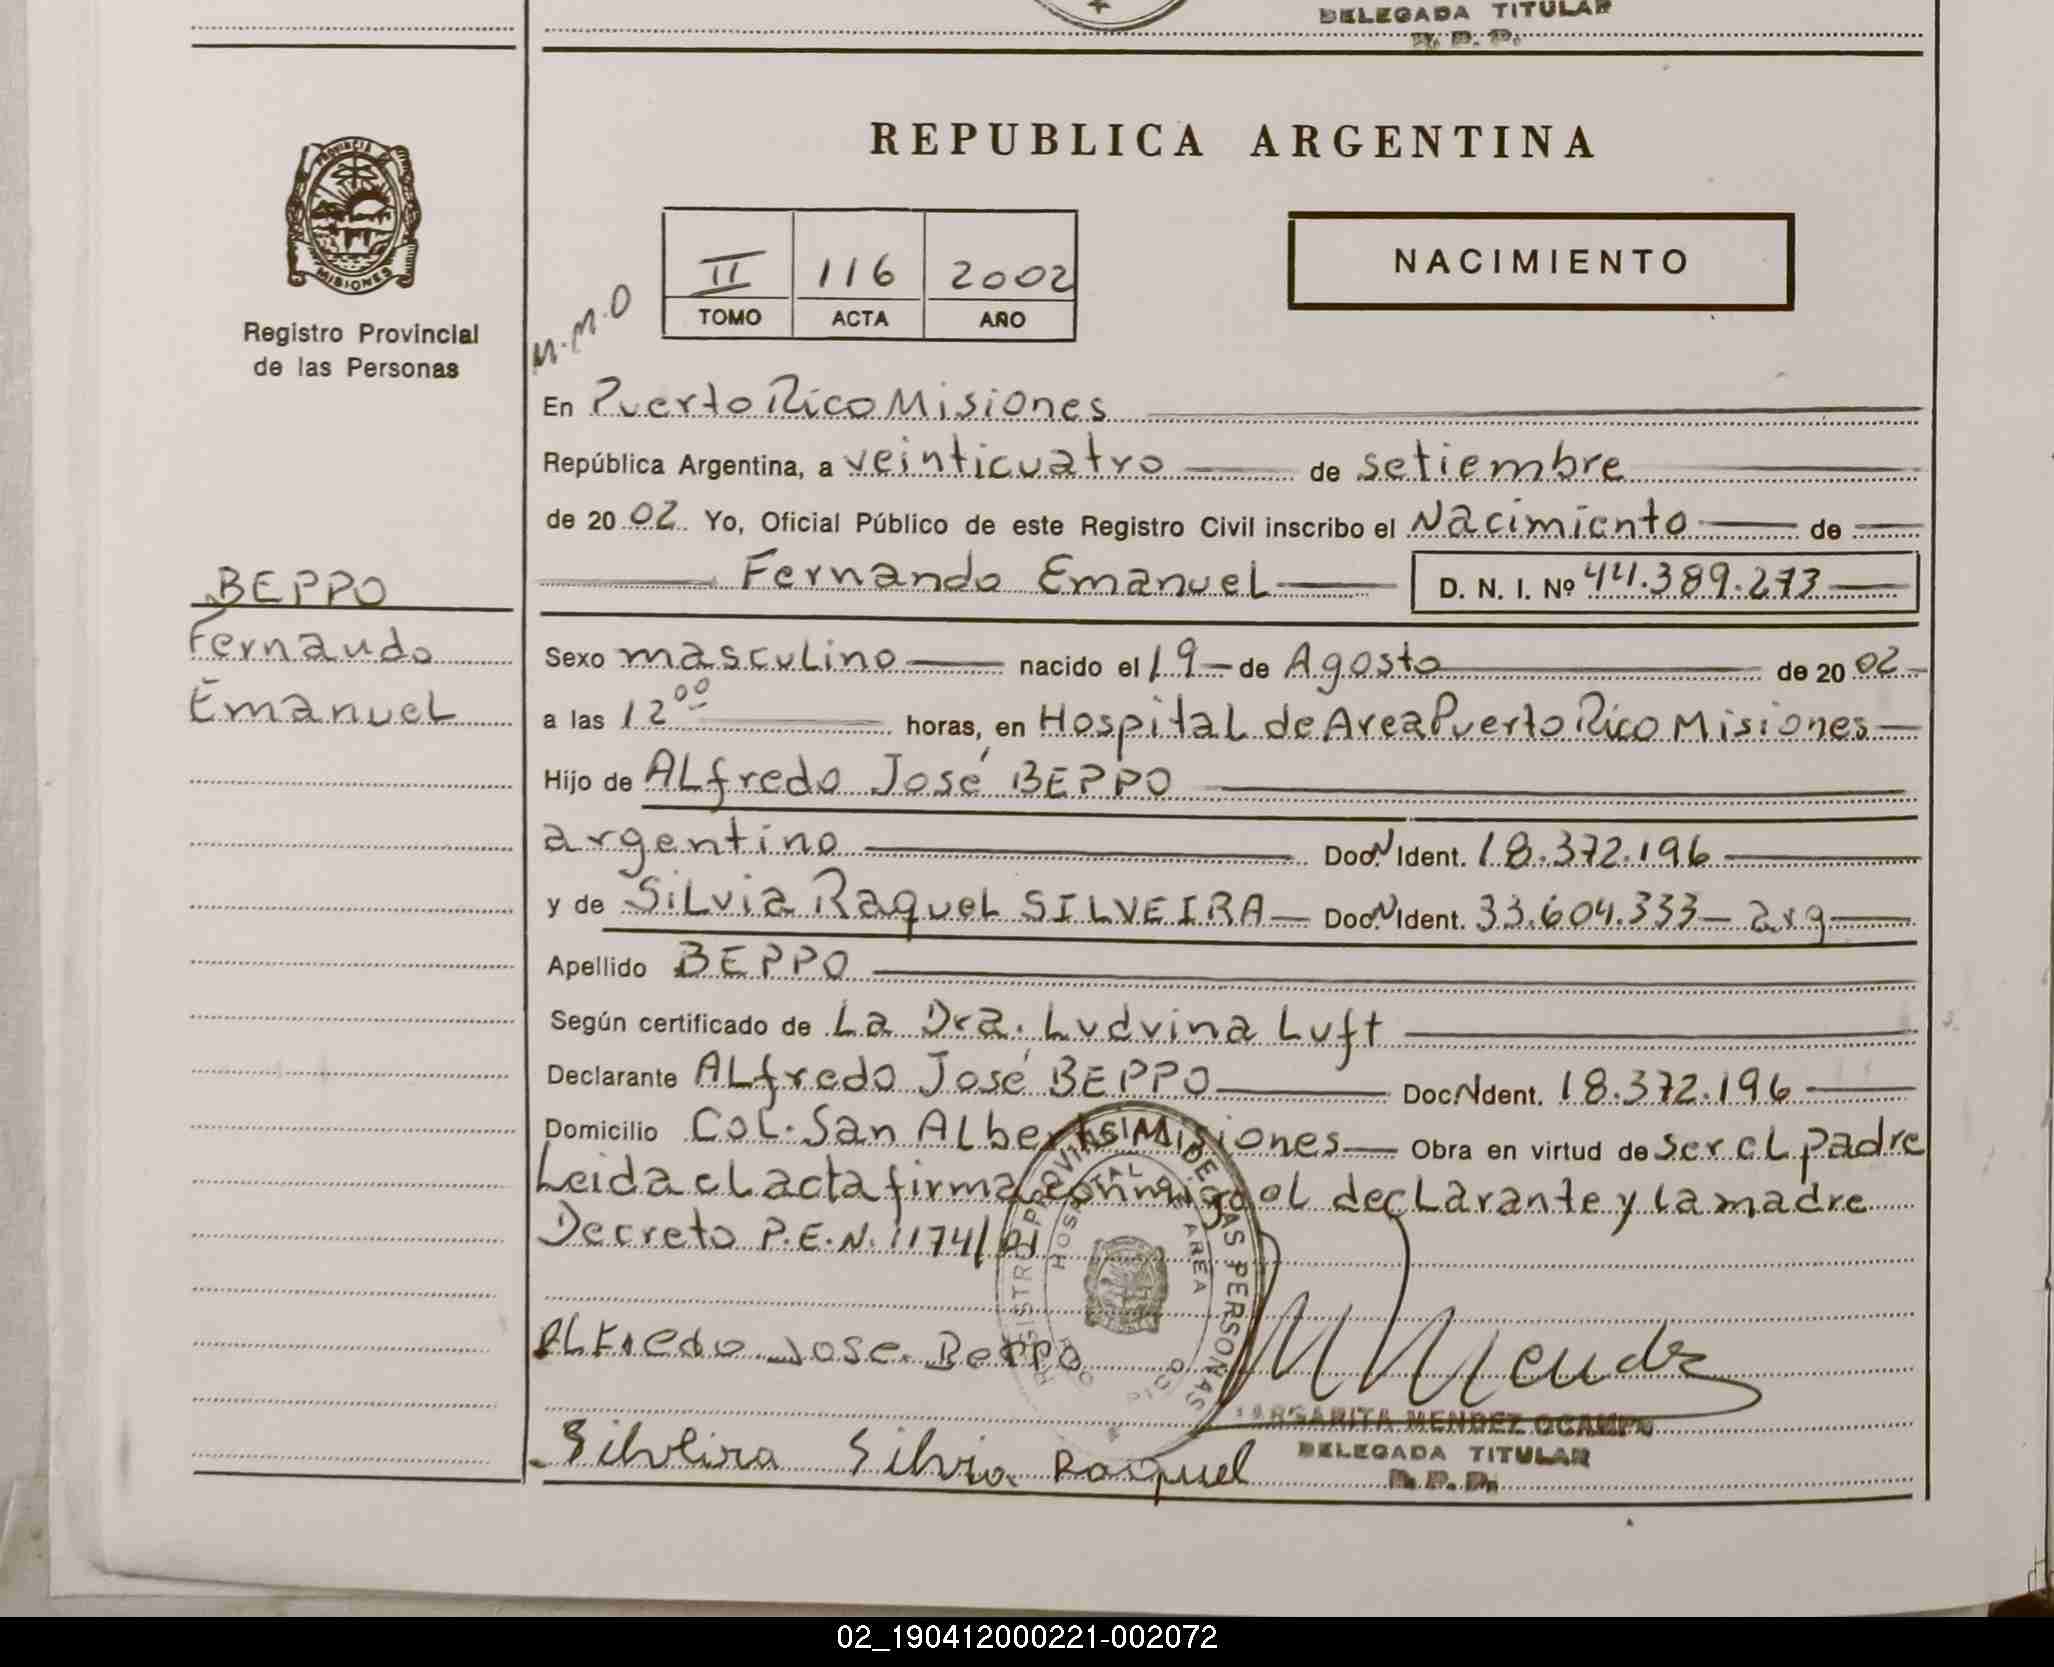 DELEGADA TITULAR
R. P. P.
PROVINCIA DE
MISIONES
Registro Provincial
de las Personas
REPUBLICA ARGENTINA
NACIMIENTO
II 116 2002
TOMO ACTA AÑO
M.M.O
En Puerto Rico Misiones
República Argentina, a veinticuatro de setiembre
de 20 02 Yo, Oficial Público de este Registro Civil inscribo el Nacimiento de
Fernando Emanuel D. N. I. Nº 44.389.273
BEPPO
Fernando
Emanuel
Sexo masculino nacido el 19 de Agosto de 20 02
a las 12 00 horas, en Hospital de Area Puerto Rico Misiones
Hijo de ALfredo José BEPPO
argentino Doc. N Ident. 18.372.196
y de SiLvia RaqueL SILVEIRA Doc. N Ident. 33.604.333 arg
Apellido BEPPO
Según certificado de La Dra. Ludvina Luft
Declarante ALfredo José BEPPO Doc. N Ident. 18.372.196
Domicilio CoL. San ALberto Misiones Obra en virtud de ser eL padre
Leida eL acta firma conmigo eL decLarante y La madre
Decreto P.E.N. 1174/01
REGISTRO PROVINCIAL DE LAS PERSONAS
HOSPITAL DE AREA
PTO RICO
ALFredo Jose Beppo
M Mendez
MARGARITA MENDEZ OCAMPO
DELEGADA TITULAR
R. P. P.
Silveira Silvia Raquel
02_190412000221-002072